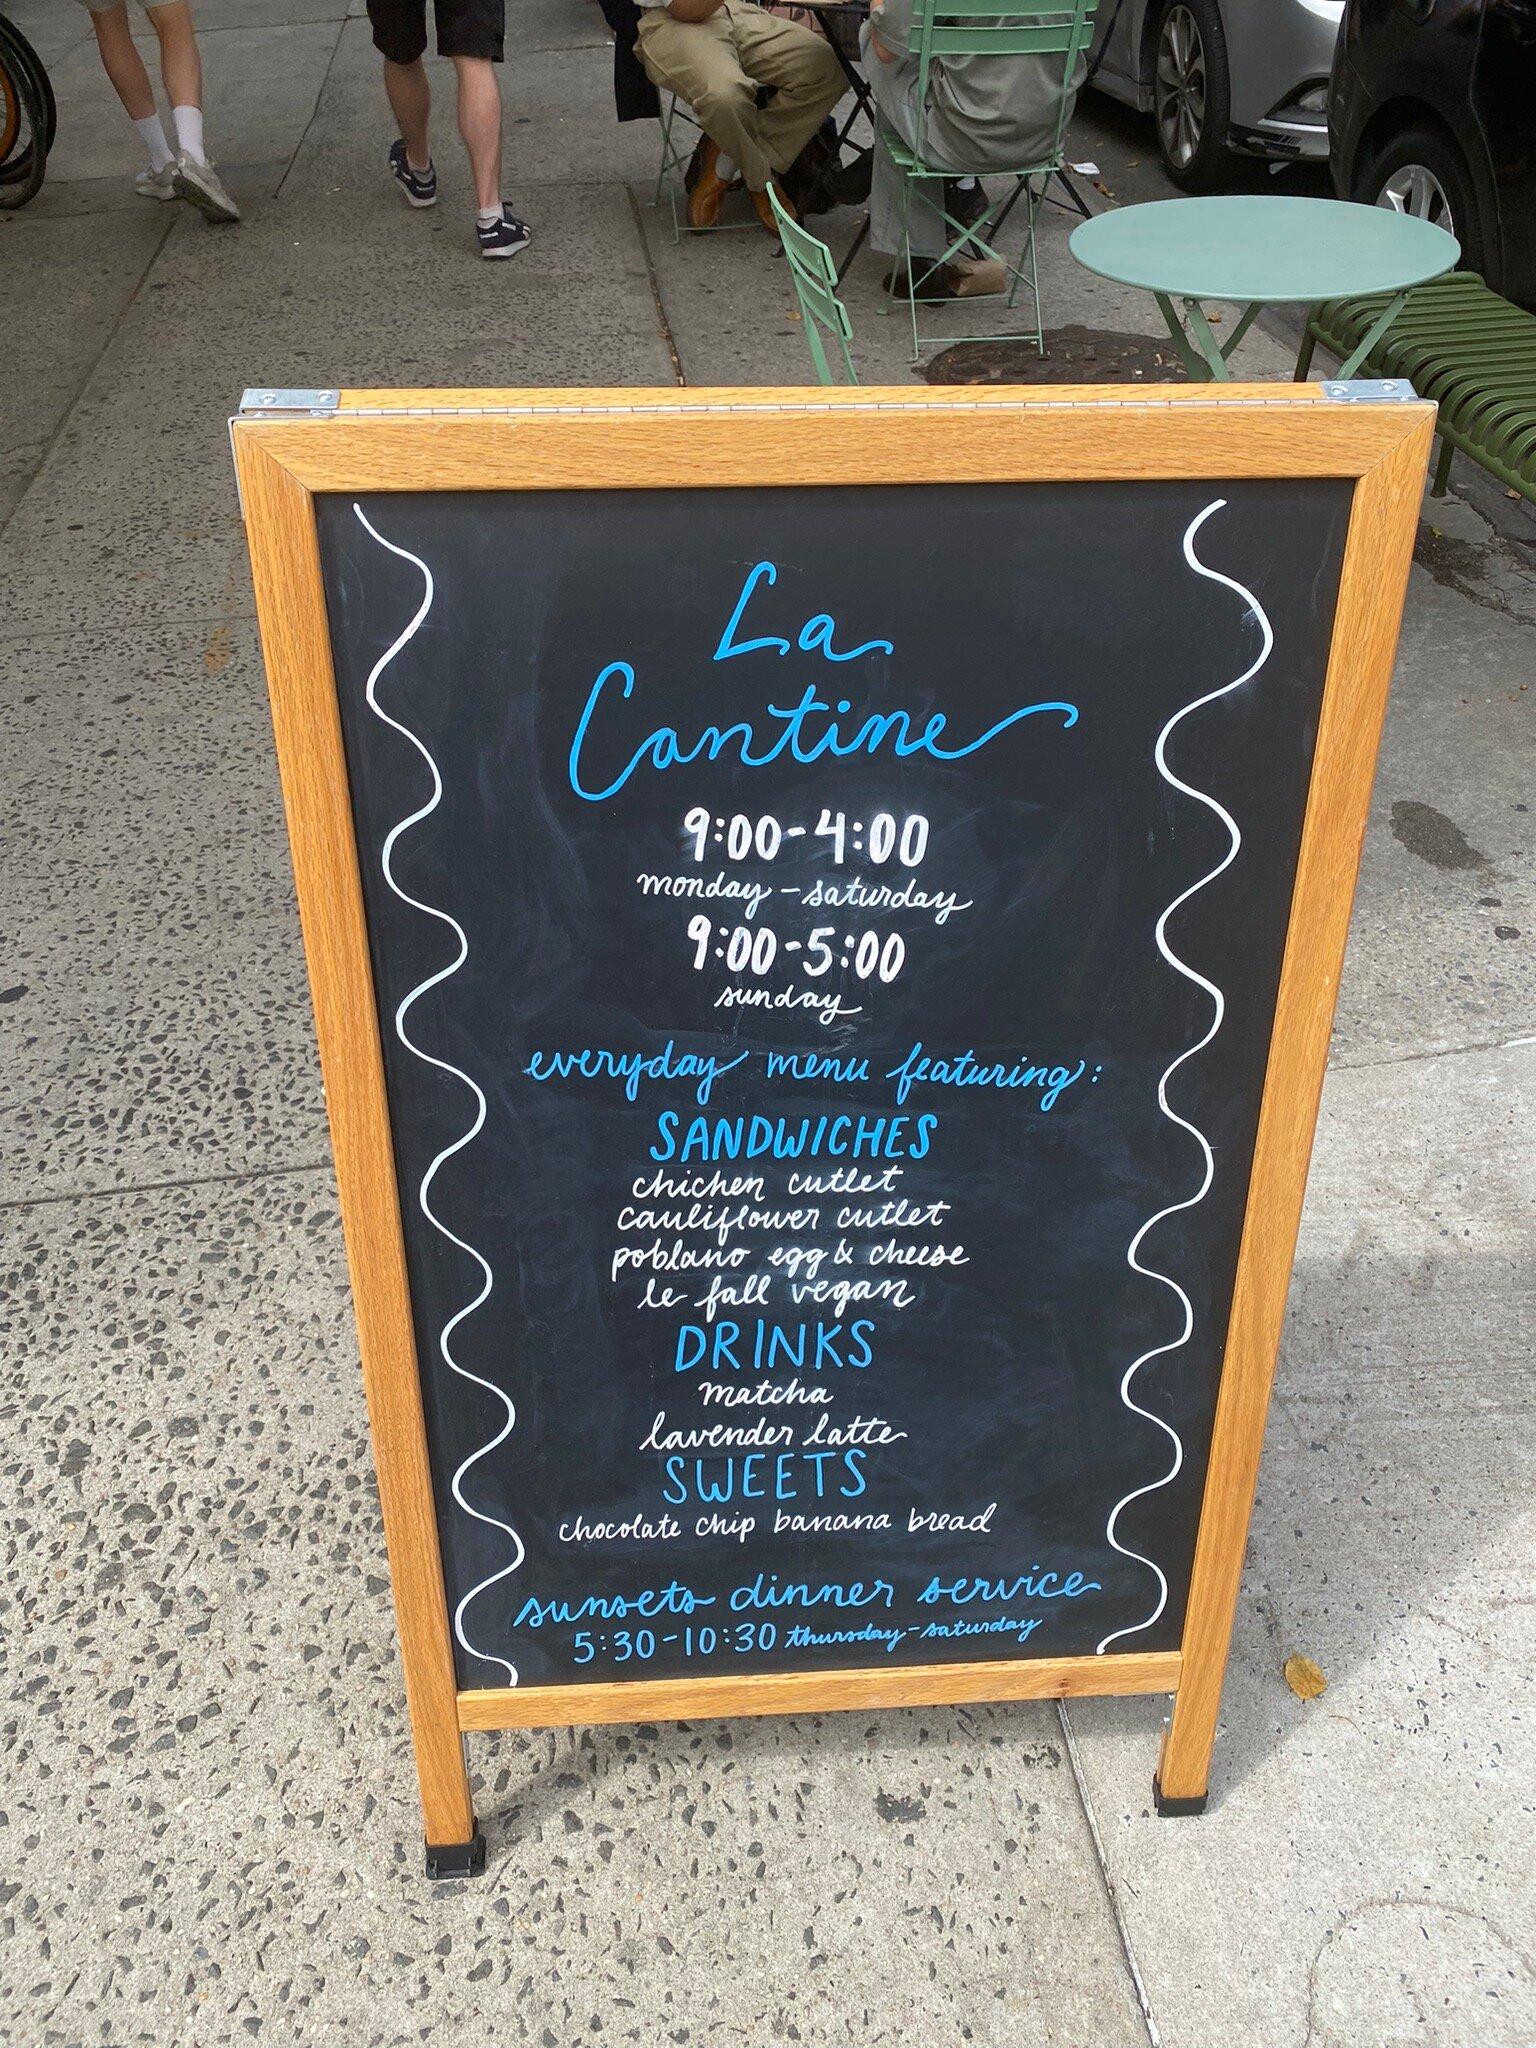 La
Cantine
9:00-4:00
monday-saturday
9:00-5:00
sunday
everyday menu featuring:
SANDWICHES
chicken cutlet
cauliflower cutlet
poblano egg & cheese
le fall vegan
DRINKS
matcha
lavender latte
SWEETS
chocolate chip banana bread
sunsets dinner service
5:30-10:30 thursday-saturday